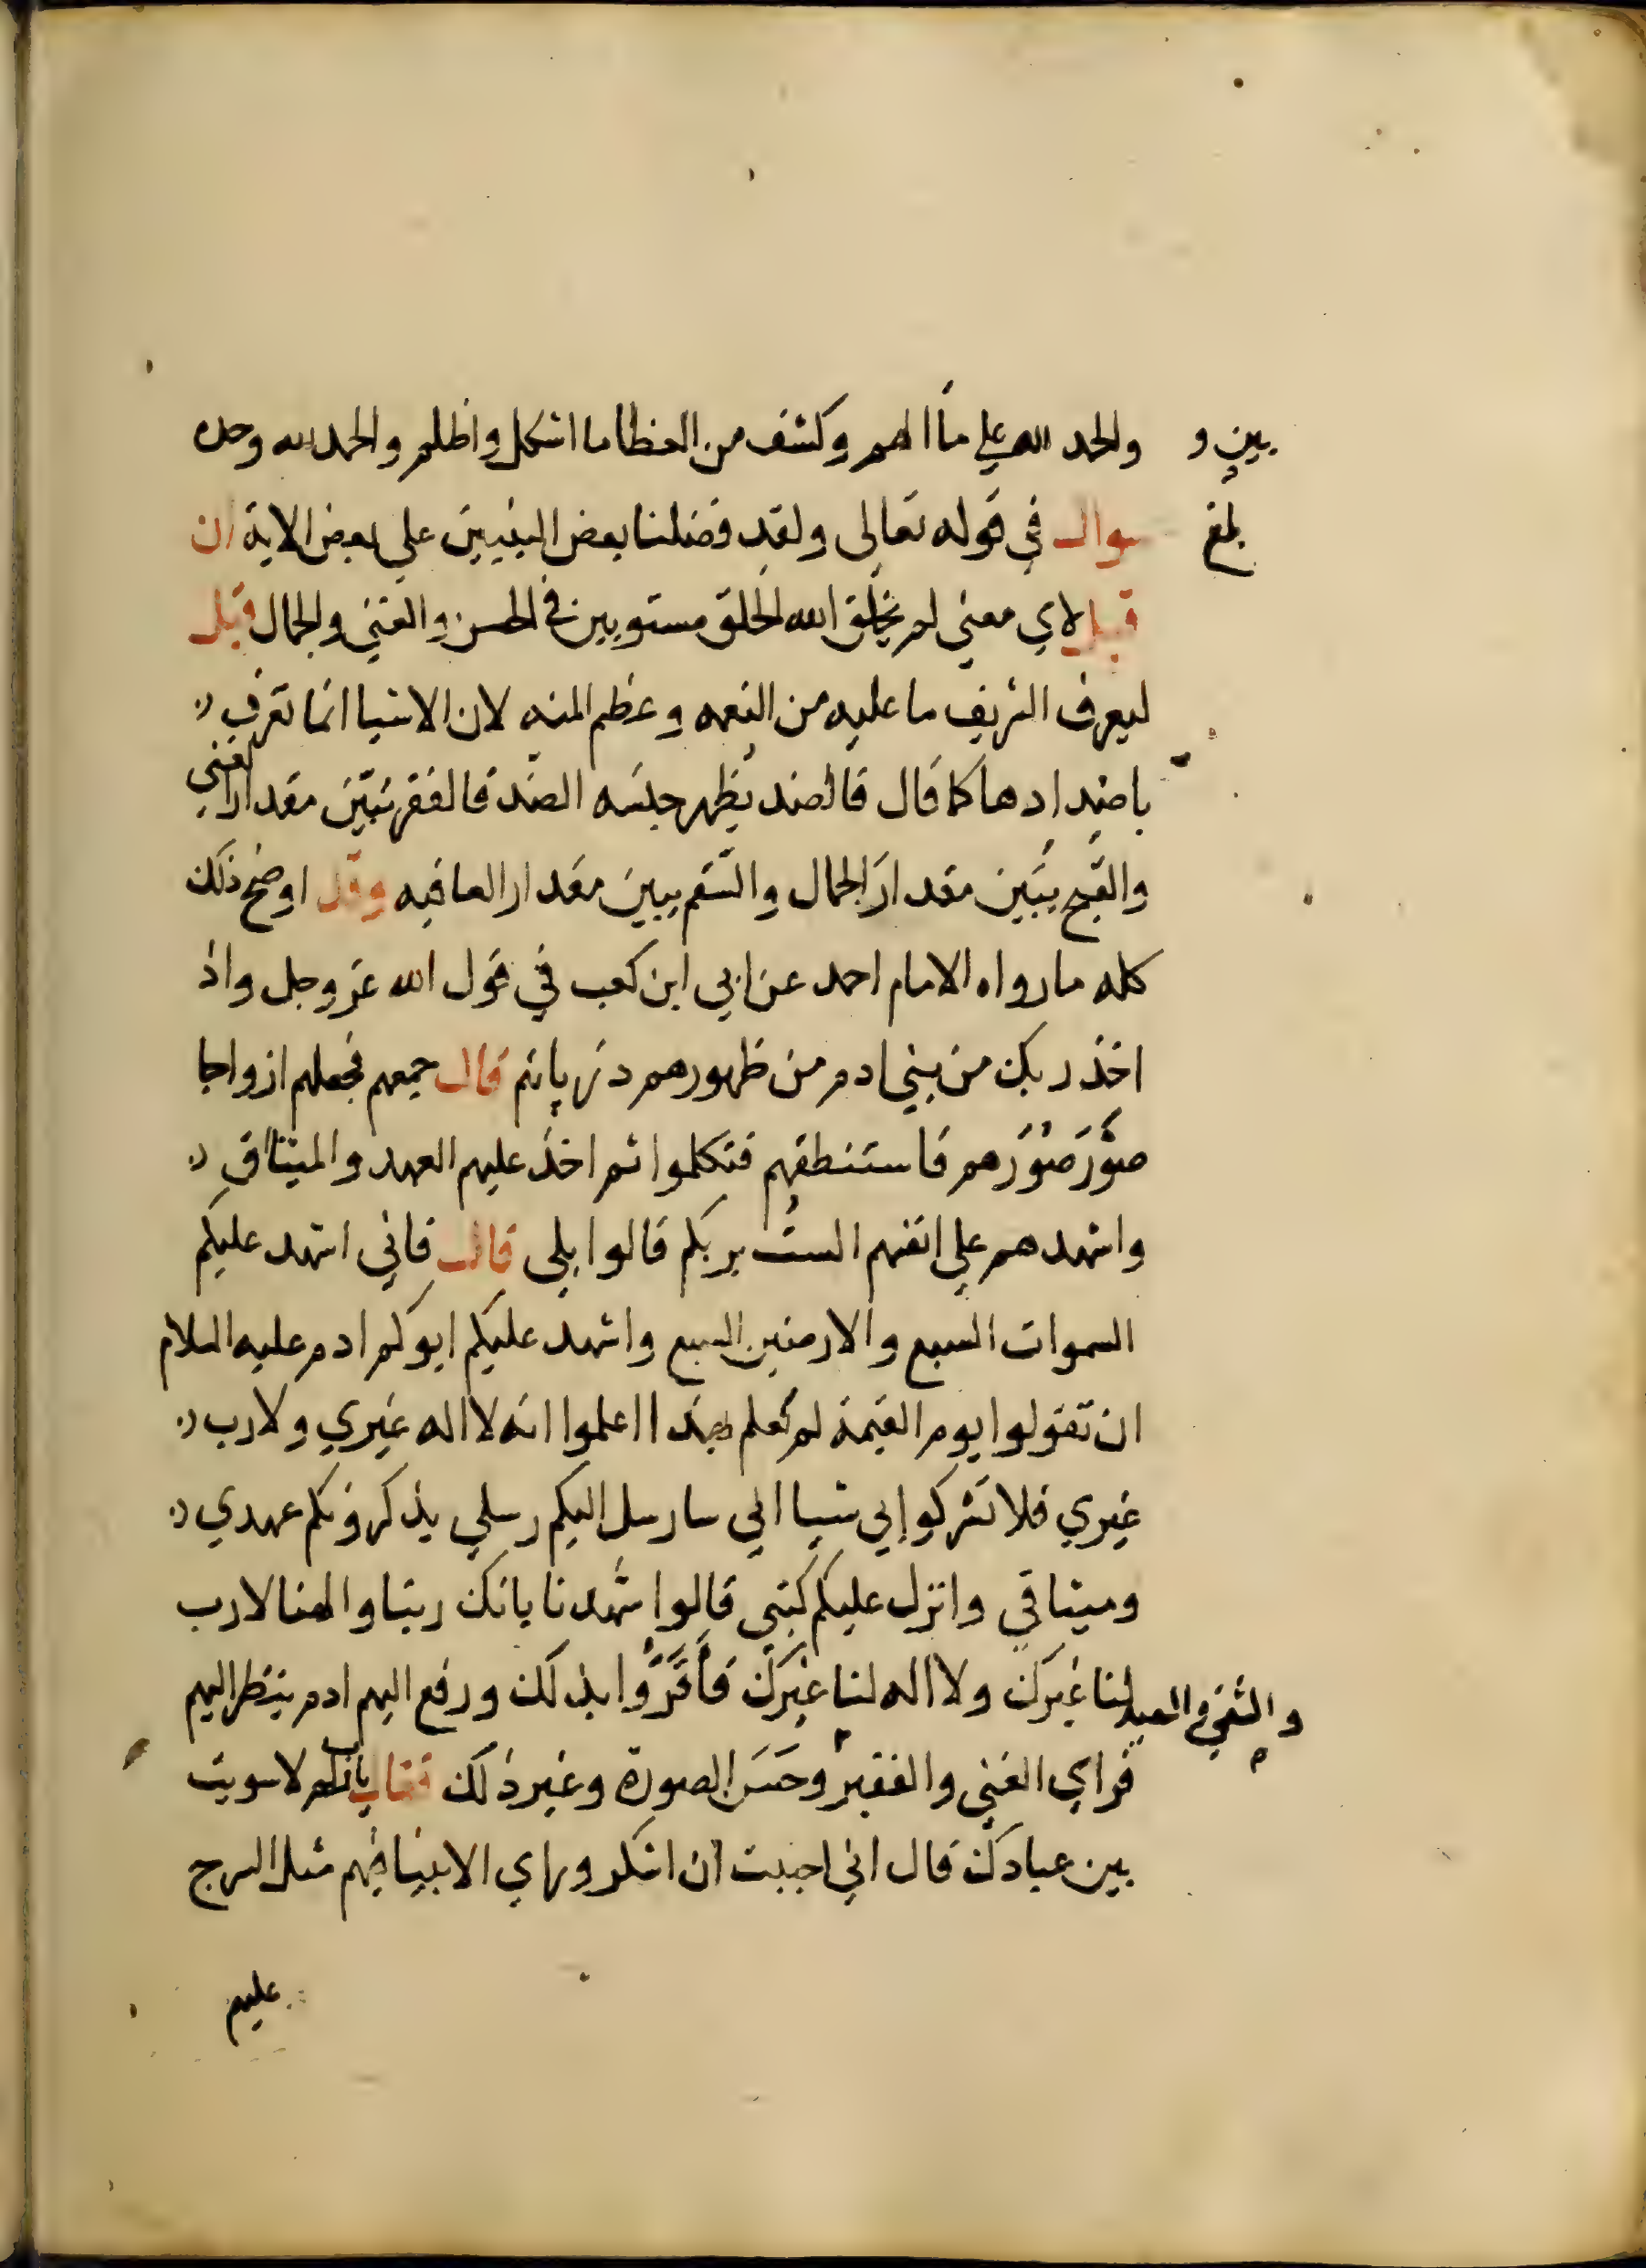 بين و والحمد لله على ما الهم وكشف من الغطا ما اشكل واظلم والحمد لله وحده
بلغ سوال في قوله تعالى ولقد فضلنا بعض النبيين على بعض الاية ان
قيل لاي معنى لم يخلق الله الخلق مستويين في الحسن والغني والجمال قيل
ليعرف الشريف ما عليه من النعمه وعظم المنه لان الاشيا انما تعرف
باضدادها كما قال فالضد يظهر حسنه الضد فالفقر يبين مقدار الغني
والقبح يبين مقدار الجمال والسقم يبين مقدار العافيه وقد اوضح ذلك
كله ما رواه الامام احمد عن ابي ابن كعب في قول الله عز وجل واذ
اخذ ربك من بني ادم من ظهورهم ذرياتهم قال جمعهم فجعلهم ازواجا
صور صورهم فاستنطقهم فتكلموا ثم اخذ عليهم العهد والميثاق
واشهدهم علي انفسهم الست بربكم قالوا بلى قال فاني اشهد عليكم
السموات السبع والارضين السبع واشهد عليكم ابوكم ادم عليه السلام
ان تقولوا يوم القيمة لم نعلم بهذا اعلموا انه لا اله غيري ولا رب
غيري فلا تشركوا بي شيا اني سارسل اليكم رسلي يذكرونكم عهدي
وميثاقي وانزل عليكم كتبي قالوا شهدنا بانك ربنا والهنا لا رب
لنا غيرك ولا اله لنا غيرك فأقروا بذلك ورفع اليهم ادم ينظر اليهم
والشقي والسعيد
فراي الغني والفقير وحسن الصورة وغير ذلك فقال يا رب لم لا سويت
بين عبادك قال اني احببت ان اشكر وراي الانبيا فيهم مثل السرج
عليهم